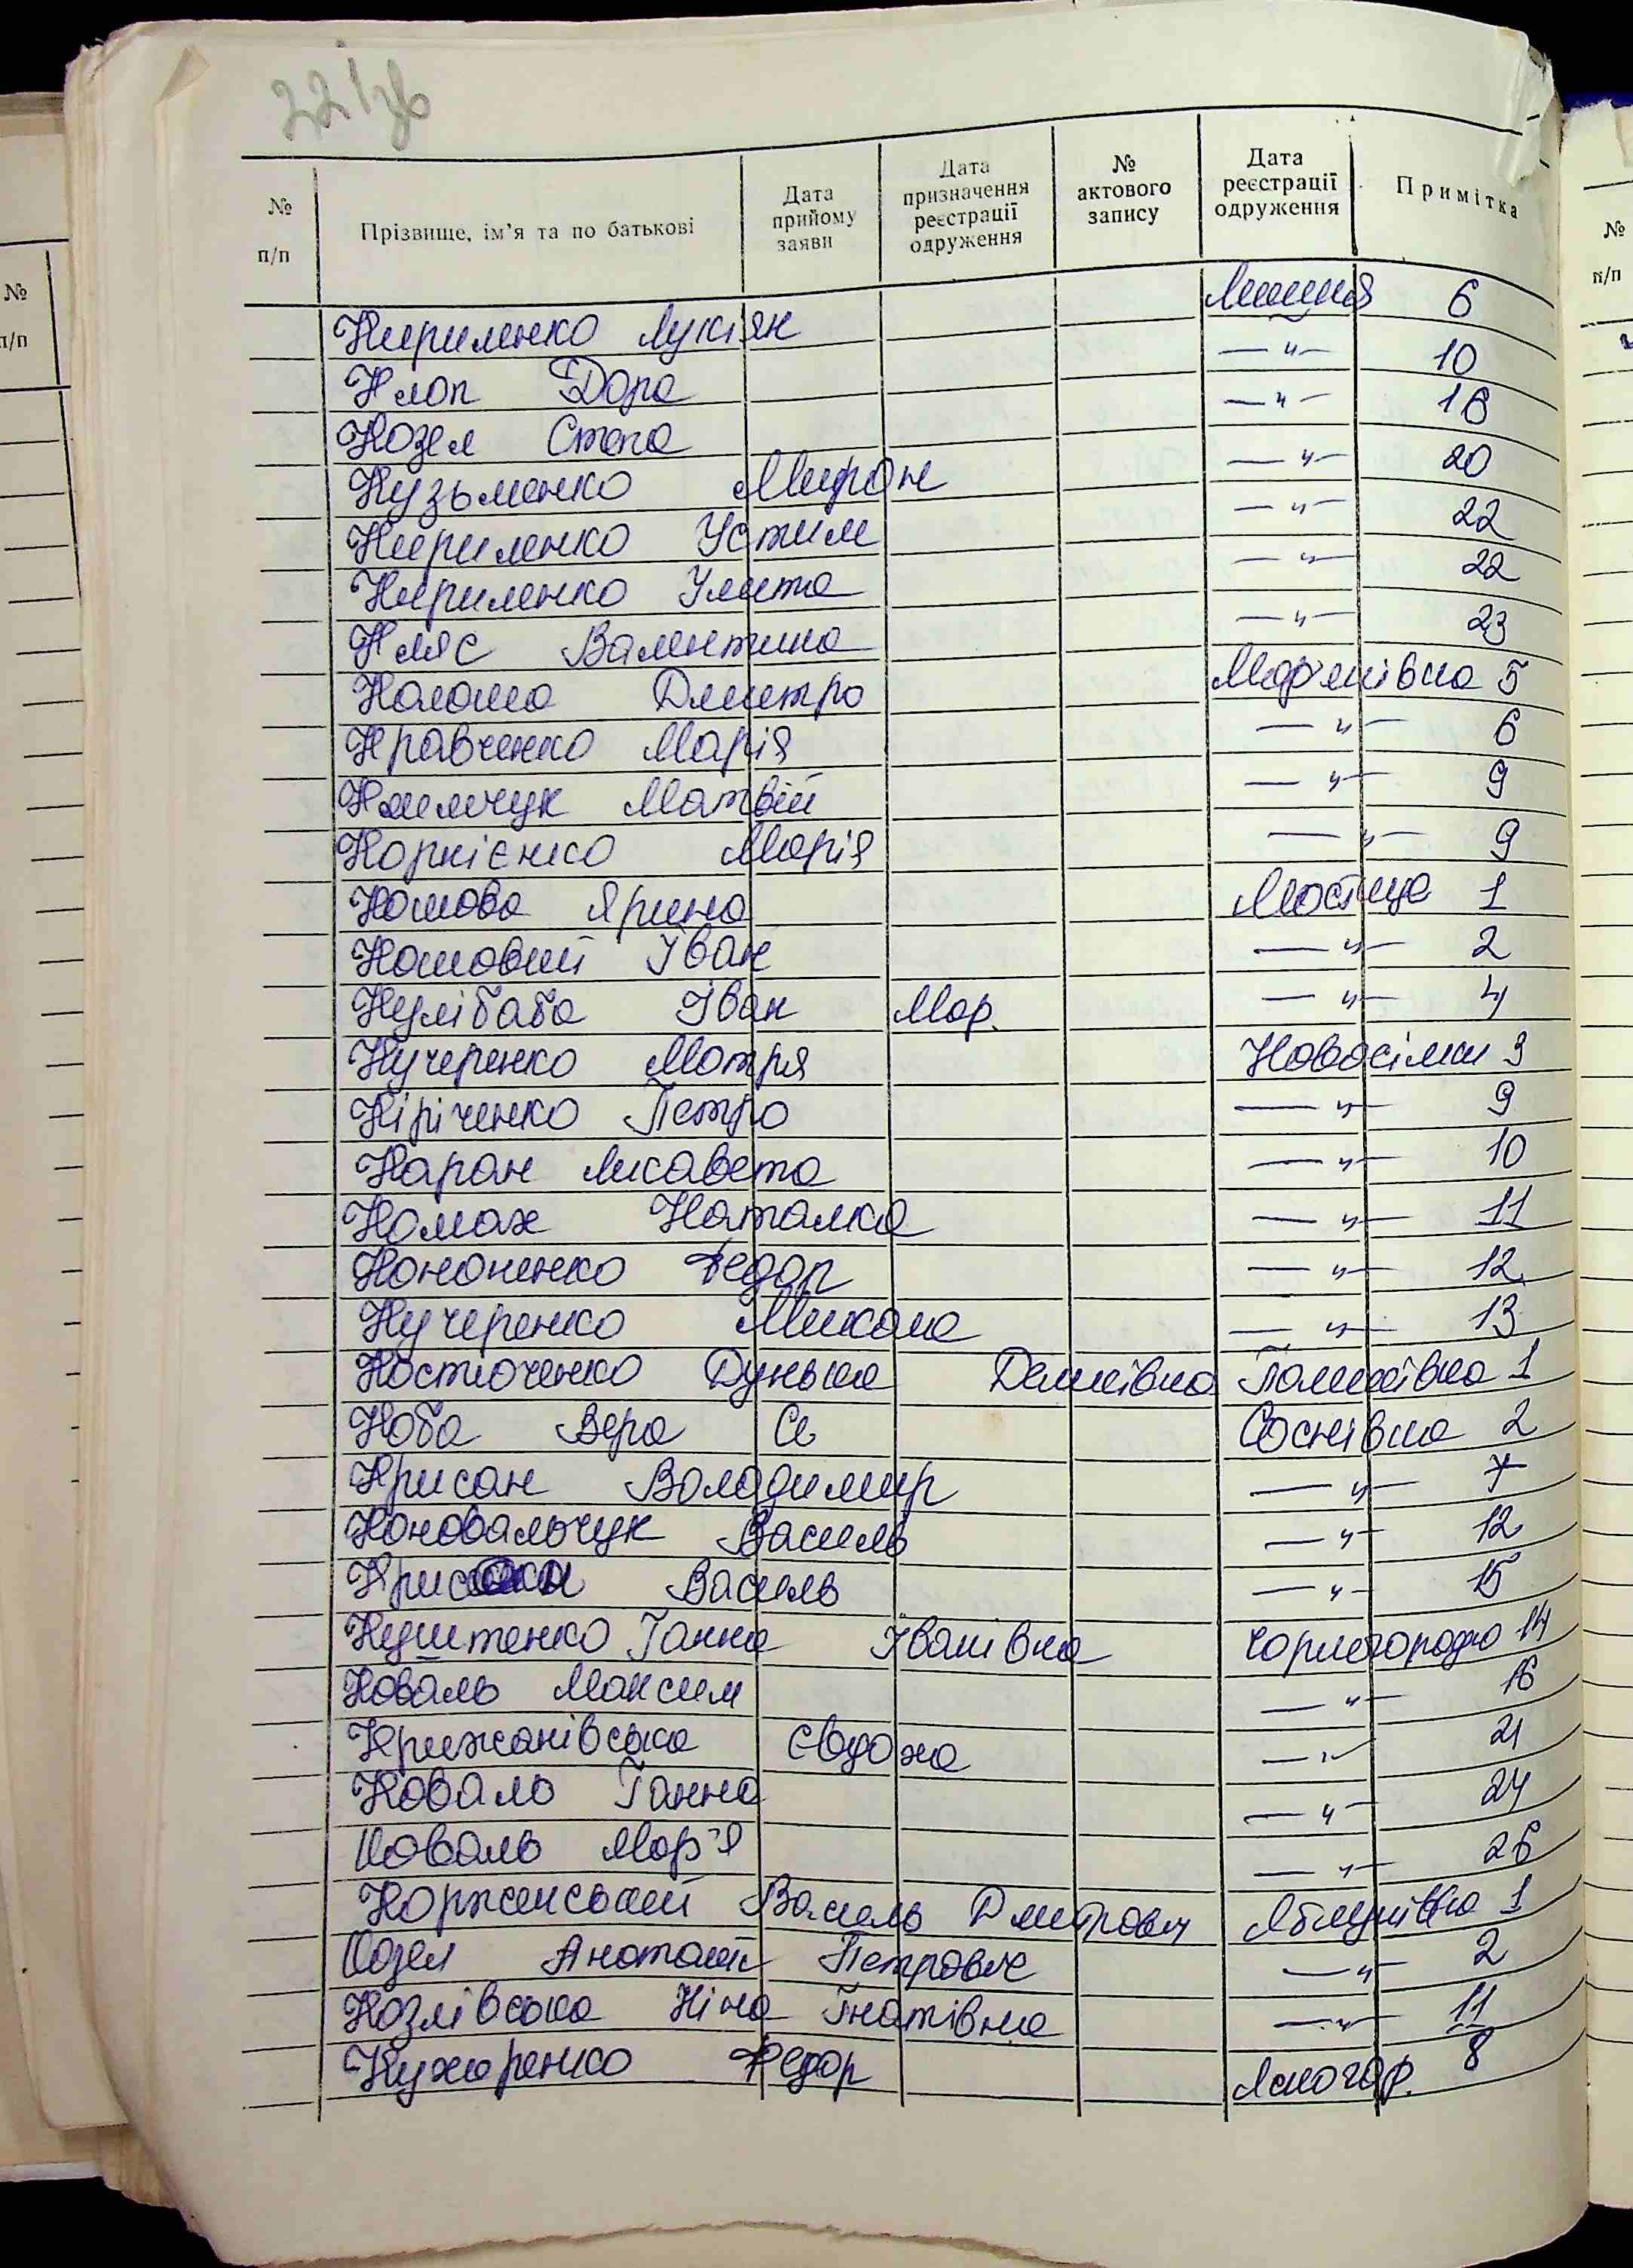 221зв
№ п/п Прізвище, ім'я та по батькові Дата прийому заяви Дата призначення реєстрації одруження № актового запису Дата реєстрації одруження Примітка
Кириленко Лукіян Лишня 6
Клоп Дора — " — 10
Козел Степа — " — 18
Кузьменко Мирон — " — 20
Кириленко Устим — " — 22
Кириленко Улита — " — 22
Кляс Валентина — " — 23
Калаша Дмитро Мар'янівка 5
Кравченко Марія — " — 6
Климчук Матвій — " — 9
Корнієнко Марія — " — 9
Кошова Ярина Мостище 1
Кошовий Іван — " — 2
Кулібаба Іван Мар. — " — 4
Кучеренко Мотря Новосілки 3
Кіріченко Петро — " — 9
Каран Лисавета — " — 10
Комах Наталка — " — 11
Кононенко Федор — " — 12
Кучеренко Микола — " — 13
Костюченко Дунька Демківна Палиївка 1
Коба Вера Се Соснівка 2
Крисан Володимир — " — 7
Коновальчук Василь — " — 12
Василь — " — 15
Куштенко Ганна Іванівна Чорногородка 14
Коваль Максим — " — 16
Крижанівська Євдоха — " — 21
Коваль Ганна — " — 24
Коваль Мар'я — " — 26
Коржинський Василь Дмитрович Яблунівка 1
Козел Анатолій Петрович — " — 2
Козлівська Ніна Гнатівна — " — 11
Кухаренко Федор Ясногор. 8